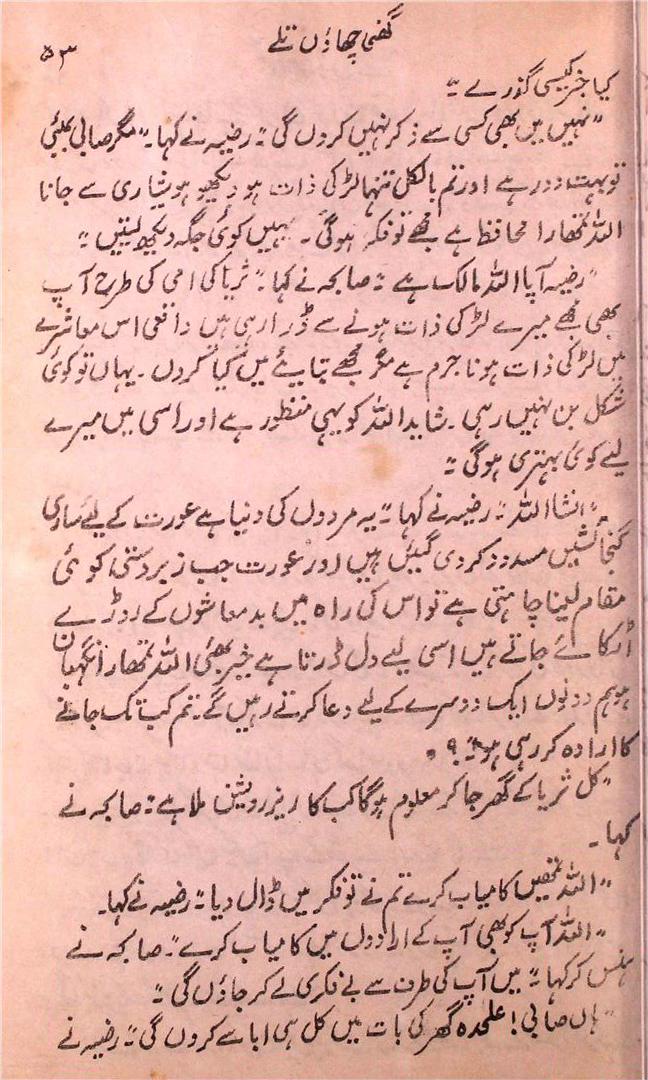 گھنی چھاؤں تلے
۵۳
کیا خبر کیسی گذرے ۔"
"نہیں میں بھی کسی سے ذکر نہیں کروں گی ۔" رضیہ نے کہا ۔" مگر صابی بھئی
تو بہت دور ہے اور تم بالکل تنہا لڑکی ذات ہو دیکھو ہوشیاری سے جانا
اللہ تمھارا محافظ ہے مجھے تو فکر ہو گی ۔ یہیں کوئی جگہ دیکھ لیتیں ۔"
"رضیہ آپا اللہ مالک ہے ۔" صابحہ نے کہا ۔" ثریا کی امی کی طرح آپ
بھی مجھے میرے لڑکی ذات ہونے سے ڈرا رہی ہیں واقعی اس معاشرے
میں لڑکی ذات ہونا جرم ہے مگر مجھے بتایئے میں کیا کروں ۔ یہاں تو کوئی
شکل بن نہیں رہی ۔ شاید اللہ کو یہی منظور ہے اور اسی میں میرے
لیے کوئی بہتری ہو گی ۔"
"انشا اللہ ۔" رضیہ نے کہا ۔" یہ مردوں کی دنیا ہے عورت کے لیے ساری
گنجائشیں مسدود کر دی گیئں ہیں اور عورت جب زبردستی کوئی
مقام لینا چاہتی ہے تو اس کی راہ میں بدمعاشوں کے روڑے
اٹکائے جاتے ہیں اسی لیے دل ڈرتا ہے خیر بھئی اللہ تمھارا نگہبان
ہو ہم دونوں ایک دوسرے کے لیے دعا کرتے رہیں گے ۔ تم کب تک جانے
کا ارادہ کر رہی ہو ۔" ؟
"کل ثریا کے گھر جا کر معلوم ہو گا کب کا ریزرویشن ملا ہے ۔" صابحہ نے
کہا ۔
"اللہ تمھیں کامیاب کرے تم نے تو فکر میں ڈال دیا ۔" رضیہ نے کہا ۔
"اللہ آپ کو بھی آپ کے ارادوں میں کامیاب کرے ۔" صابحہ نے
ہنس کر کہا ۔" میں آپ کی طرف سے بے فکری لے کر جاؤں گی ۔"
"ہاں صابی ! علٰحدہ گھر کی بات میں کل ہی ابا سے کروں گی ۔" رضیہ نے